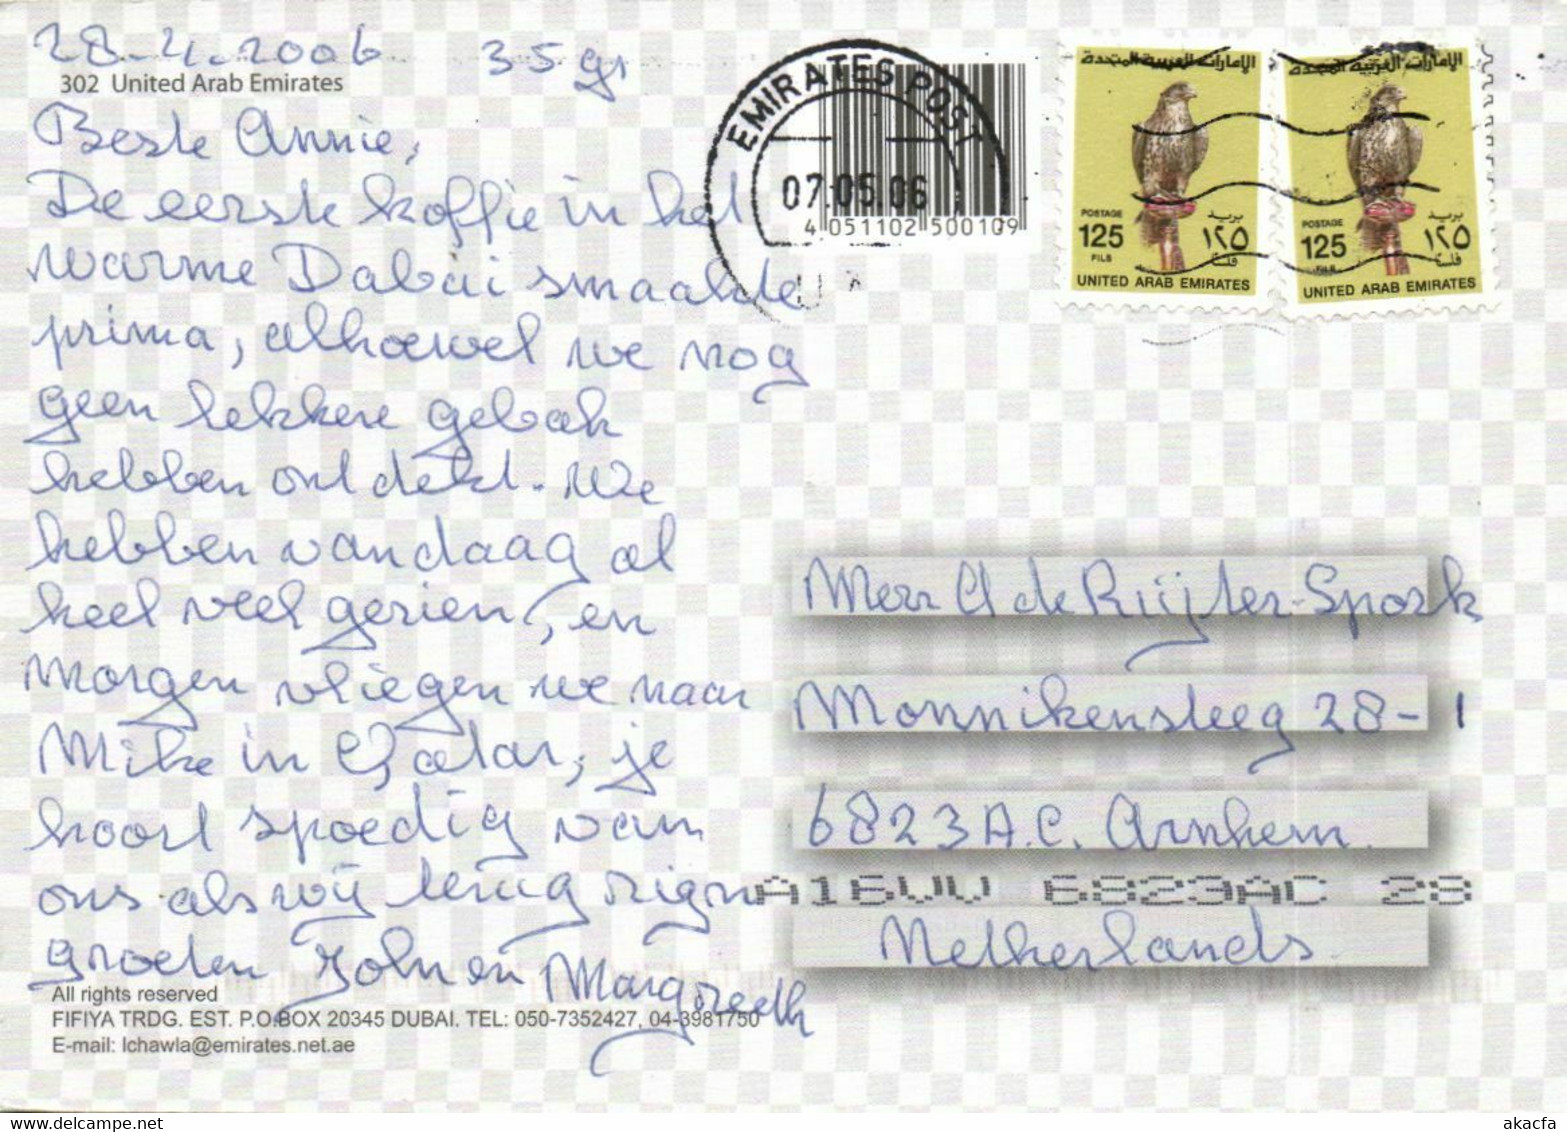 28-4.2006 35 gr
302 United Arab Emirates
Beste Annie,
De eerste koffie in het
warme Dabai smaakte
prima, alhoewel we nog
geen lekkere gebak
hebben ontdekt. We
hebben vandaag al
heel veel gezien, en
morgen vliegen we naar
Mike in Qatar, je
hoort spoedig van
ons als wij terug zign
groeten John en Margreeth
All rights reserved
FIFIYA TRDG. EST. P.O.BOX 20345 DUBAI. TEL: 050-7352427, 04-3981750
E-mail: lchawla@emirates.net.ae
EMIRATES POST
07.05.06
4 051102 500109
الإمارات العربية المتحدة
POSTAGE بريد
125 ١٢٥
FILS فلس
UNITED ARAB EMIRATES
الإمارات العربية المتحدة
POSTAGE بريد
125 ١٢٥
FILS فلس
UNITED ARAB EMIRATES
Mevr A de Ruijter-Spork
Monnikensteeg 28-1
6823 A.C. Arnhem
A16VV 6823AC 28
Netherlands
www.delcampe.net
akacfa